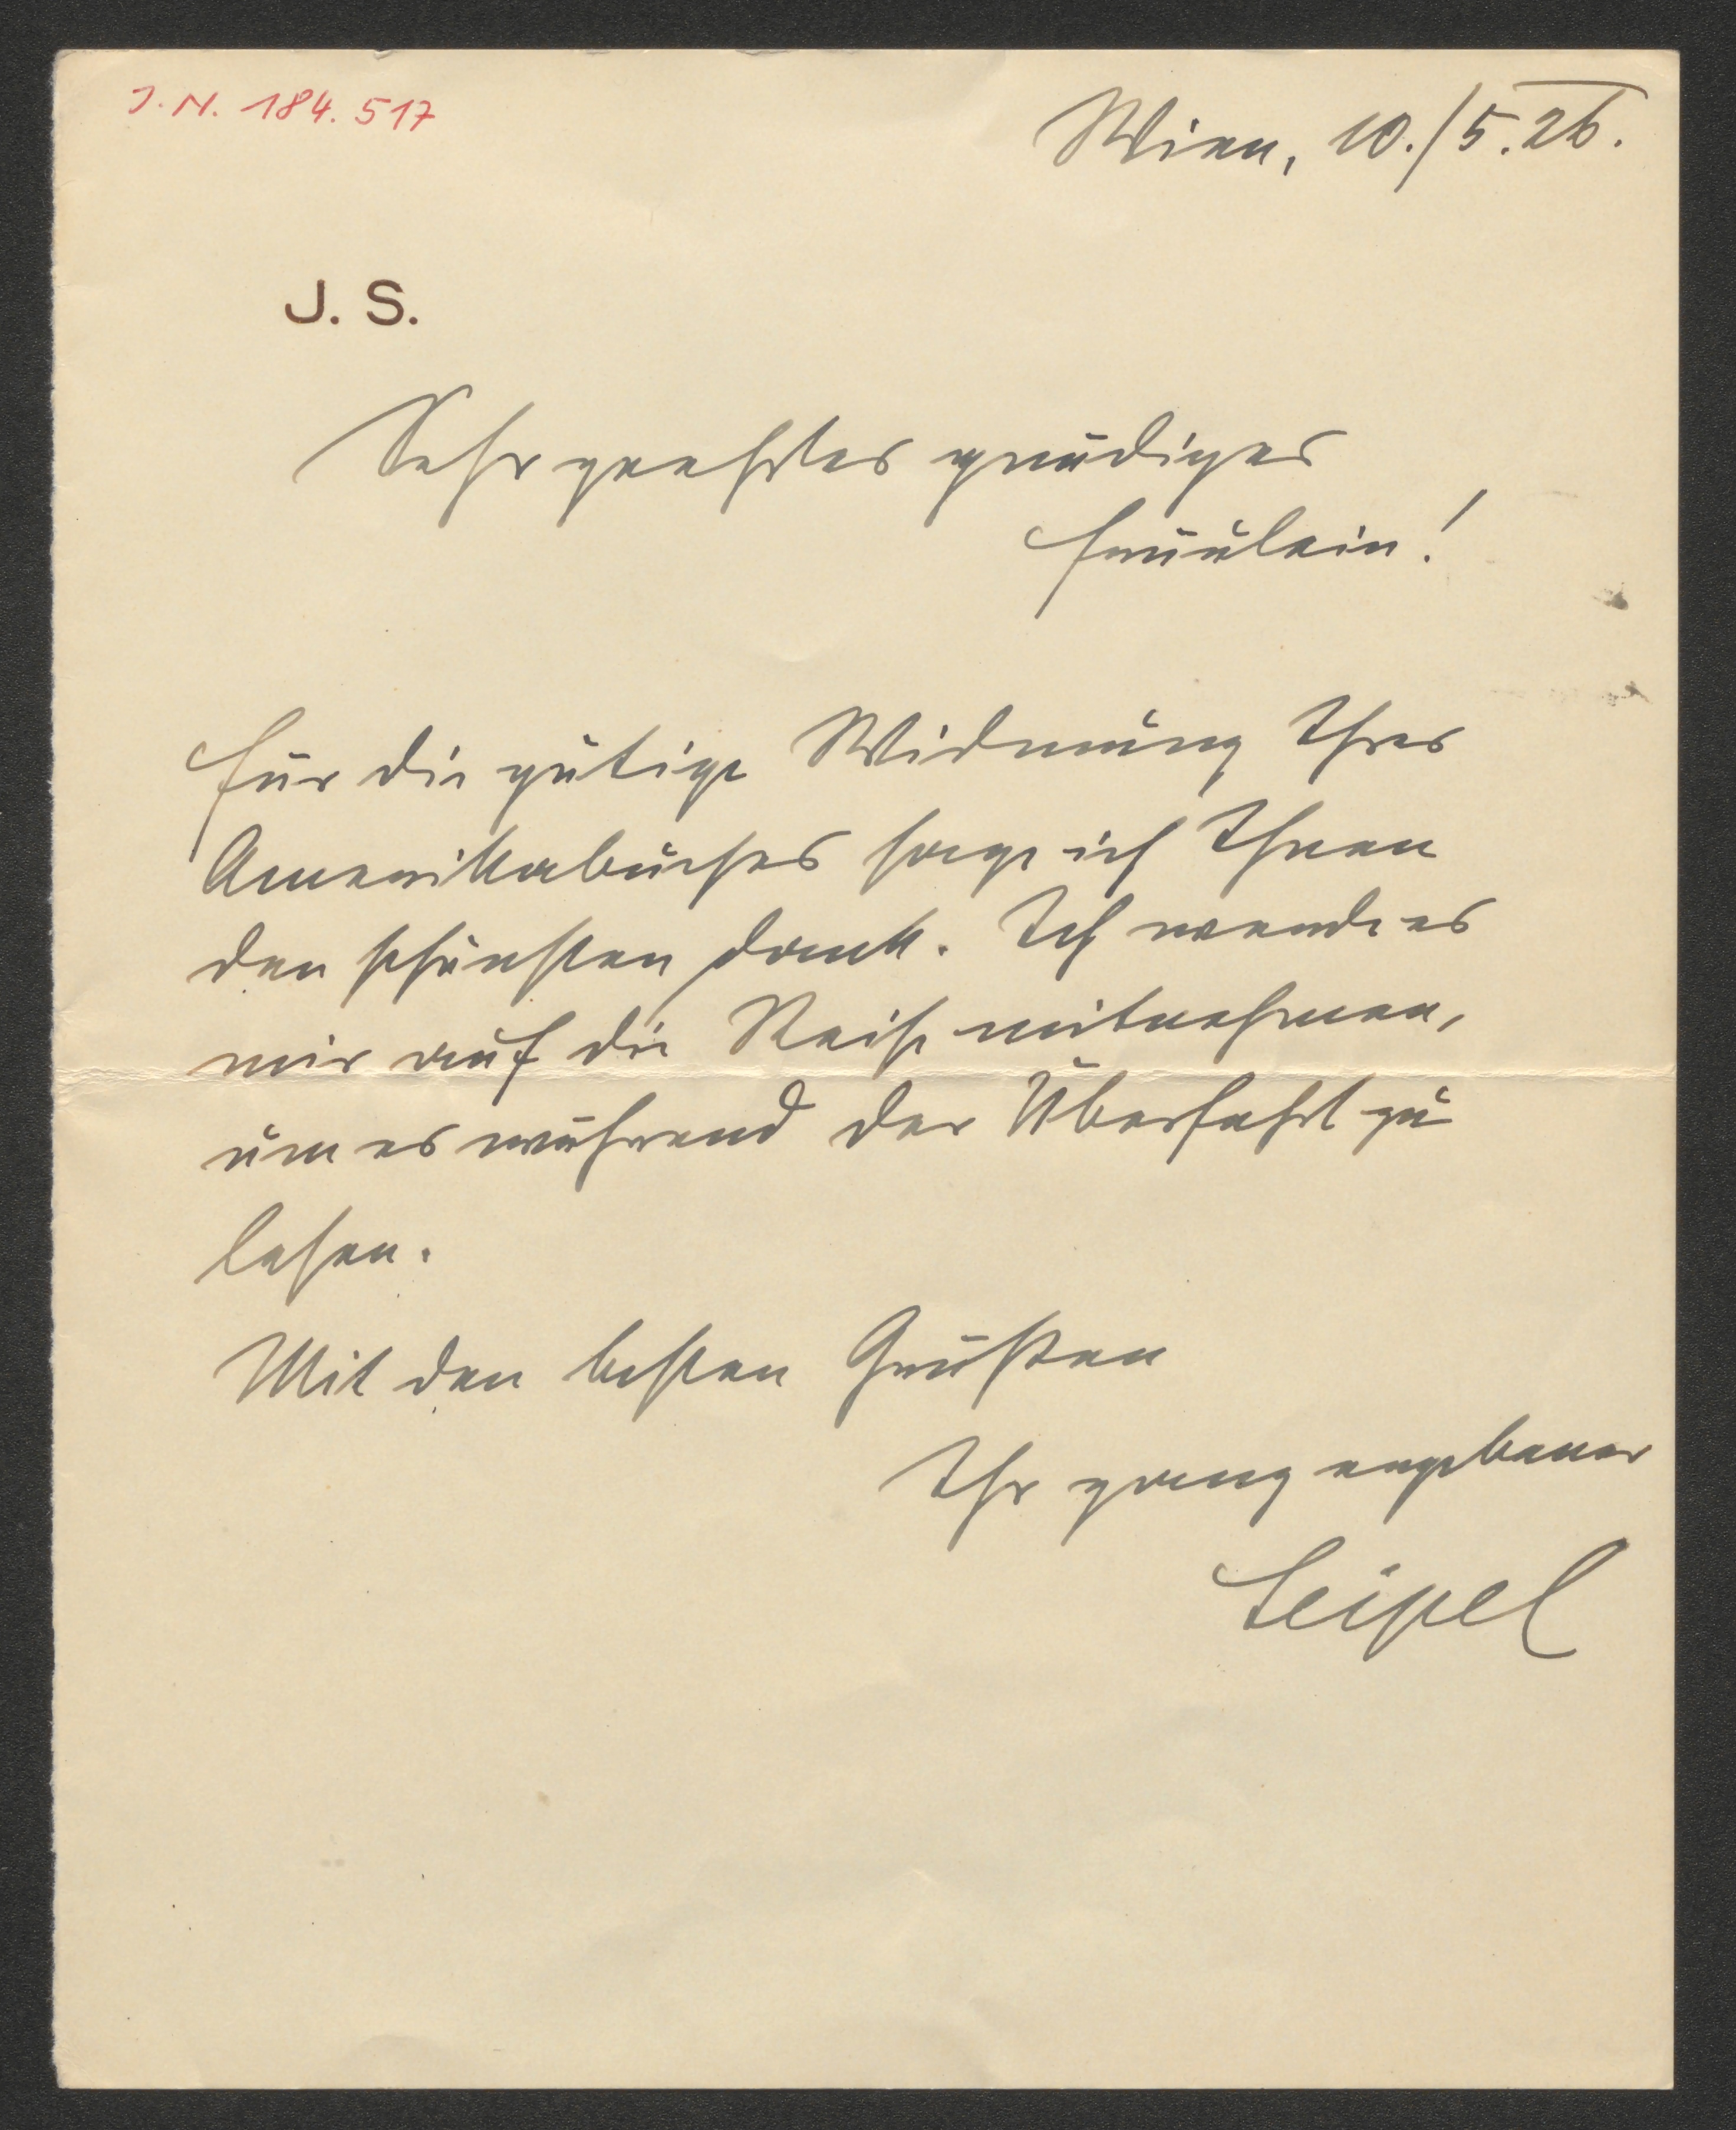 J. N. 184.517
Wien, 10./5.26.
J. S.
Sehr geehrtes gnädiges
Fräulein!
Für die gütige Widmung Ihres
Amerikabuches sage ich Ihnen
den schönsten Dank. Ich werde es
mir auf die Reise mitnehmen,
um es während der Überfahrt zu
lesen.
Mit den besten Grüßen
Ihr ganz ergebener
Seipel